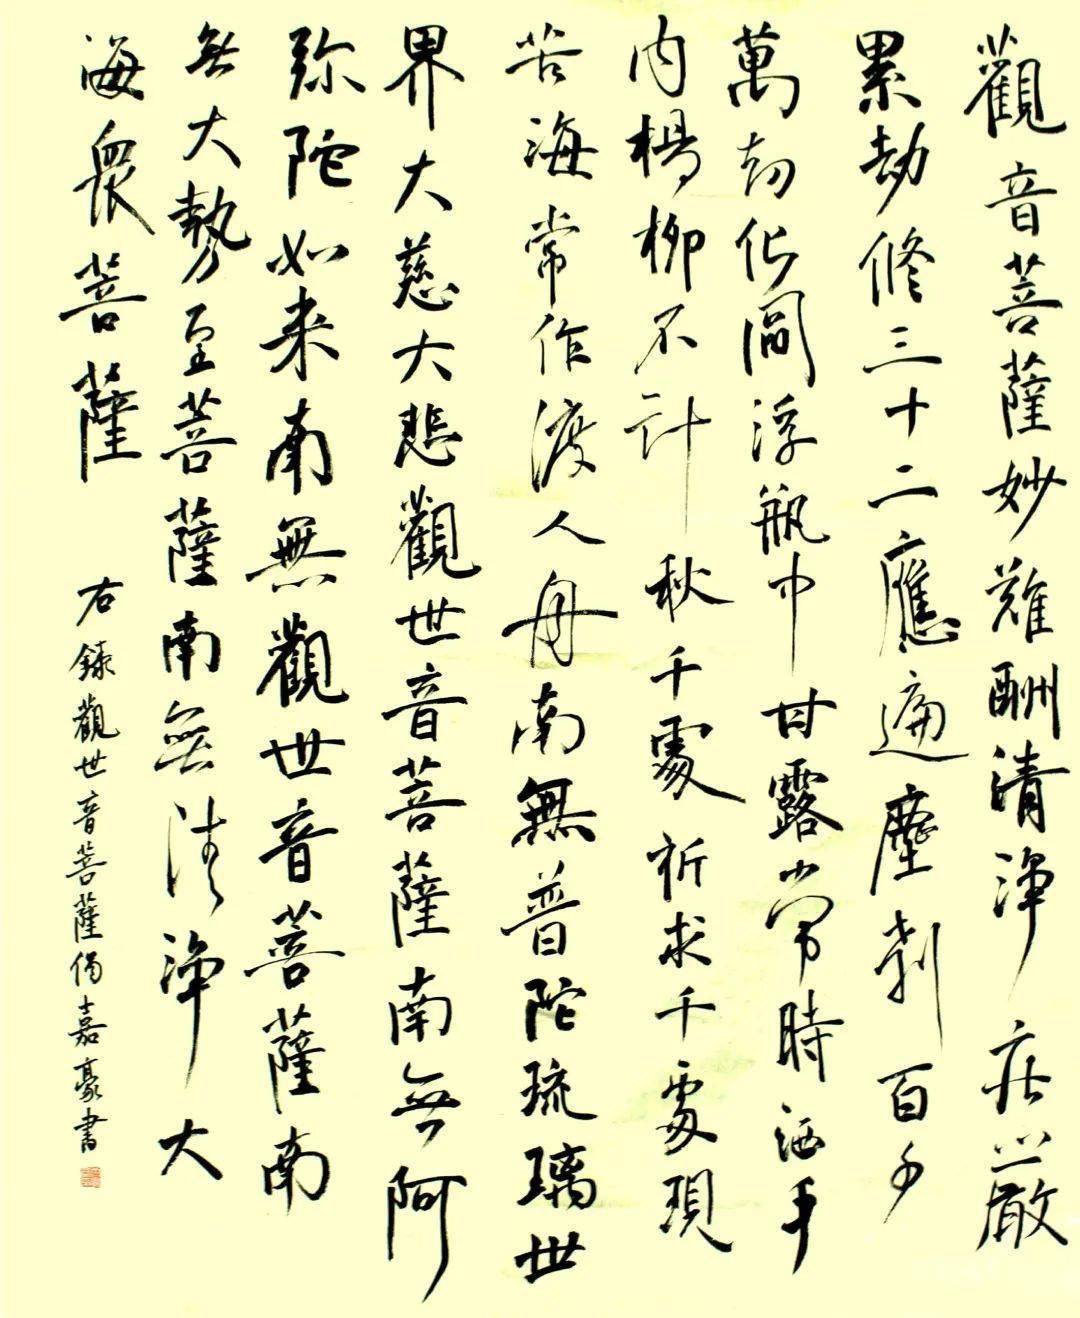 觀音菩薩妙難酬清淨莊嚴
累劫修三十二應遍塵剎百千
萬劫化閻浮瓶中甘露常時洒手
内楊柳不計秋千處祈求千處現
苦海常作渡人舟南無普陀琉璃世
界大慈大悲觀世音菩薩南無阿
弥陀如来南無觀世音菩薩南
無大勢至菩薩南無清淨大
海衆菩薩
右錄觀世音菩薩偈嘉豪書